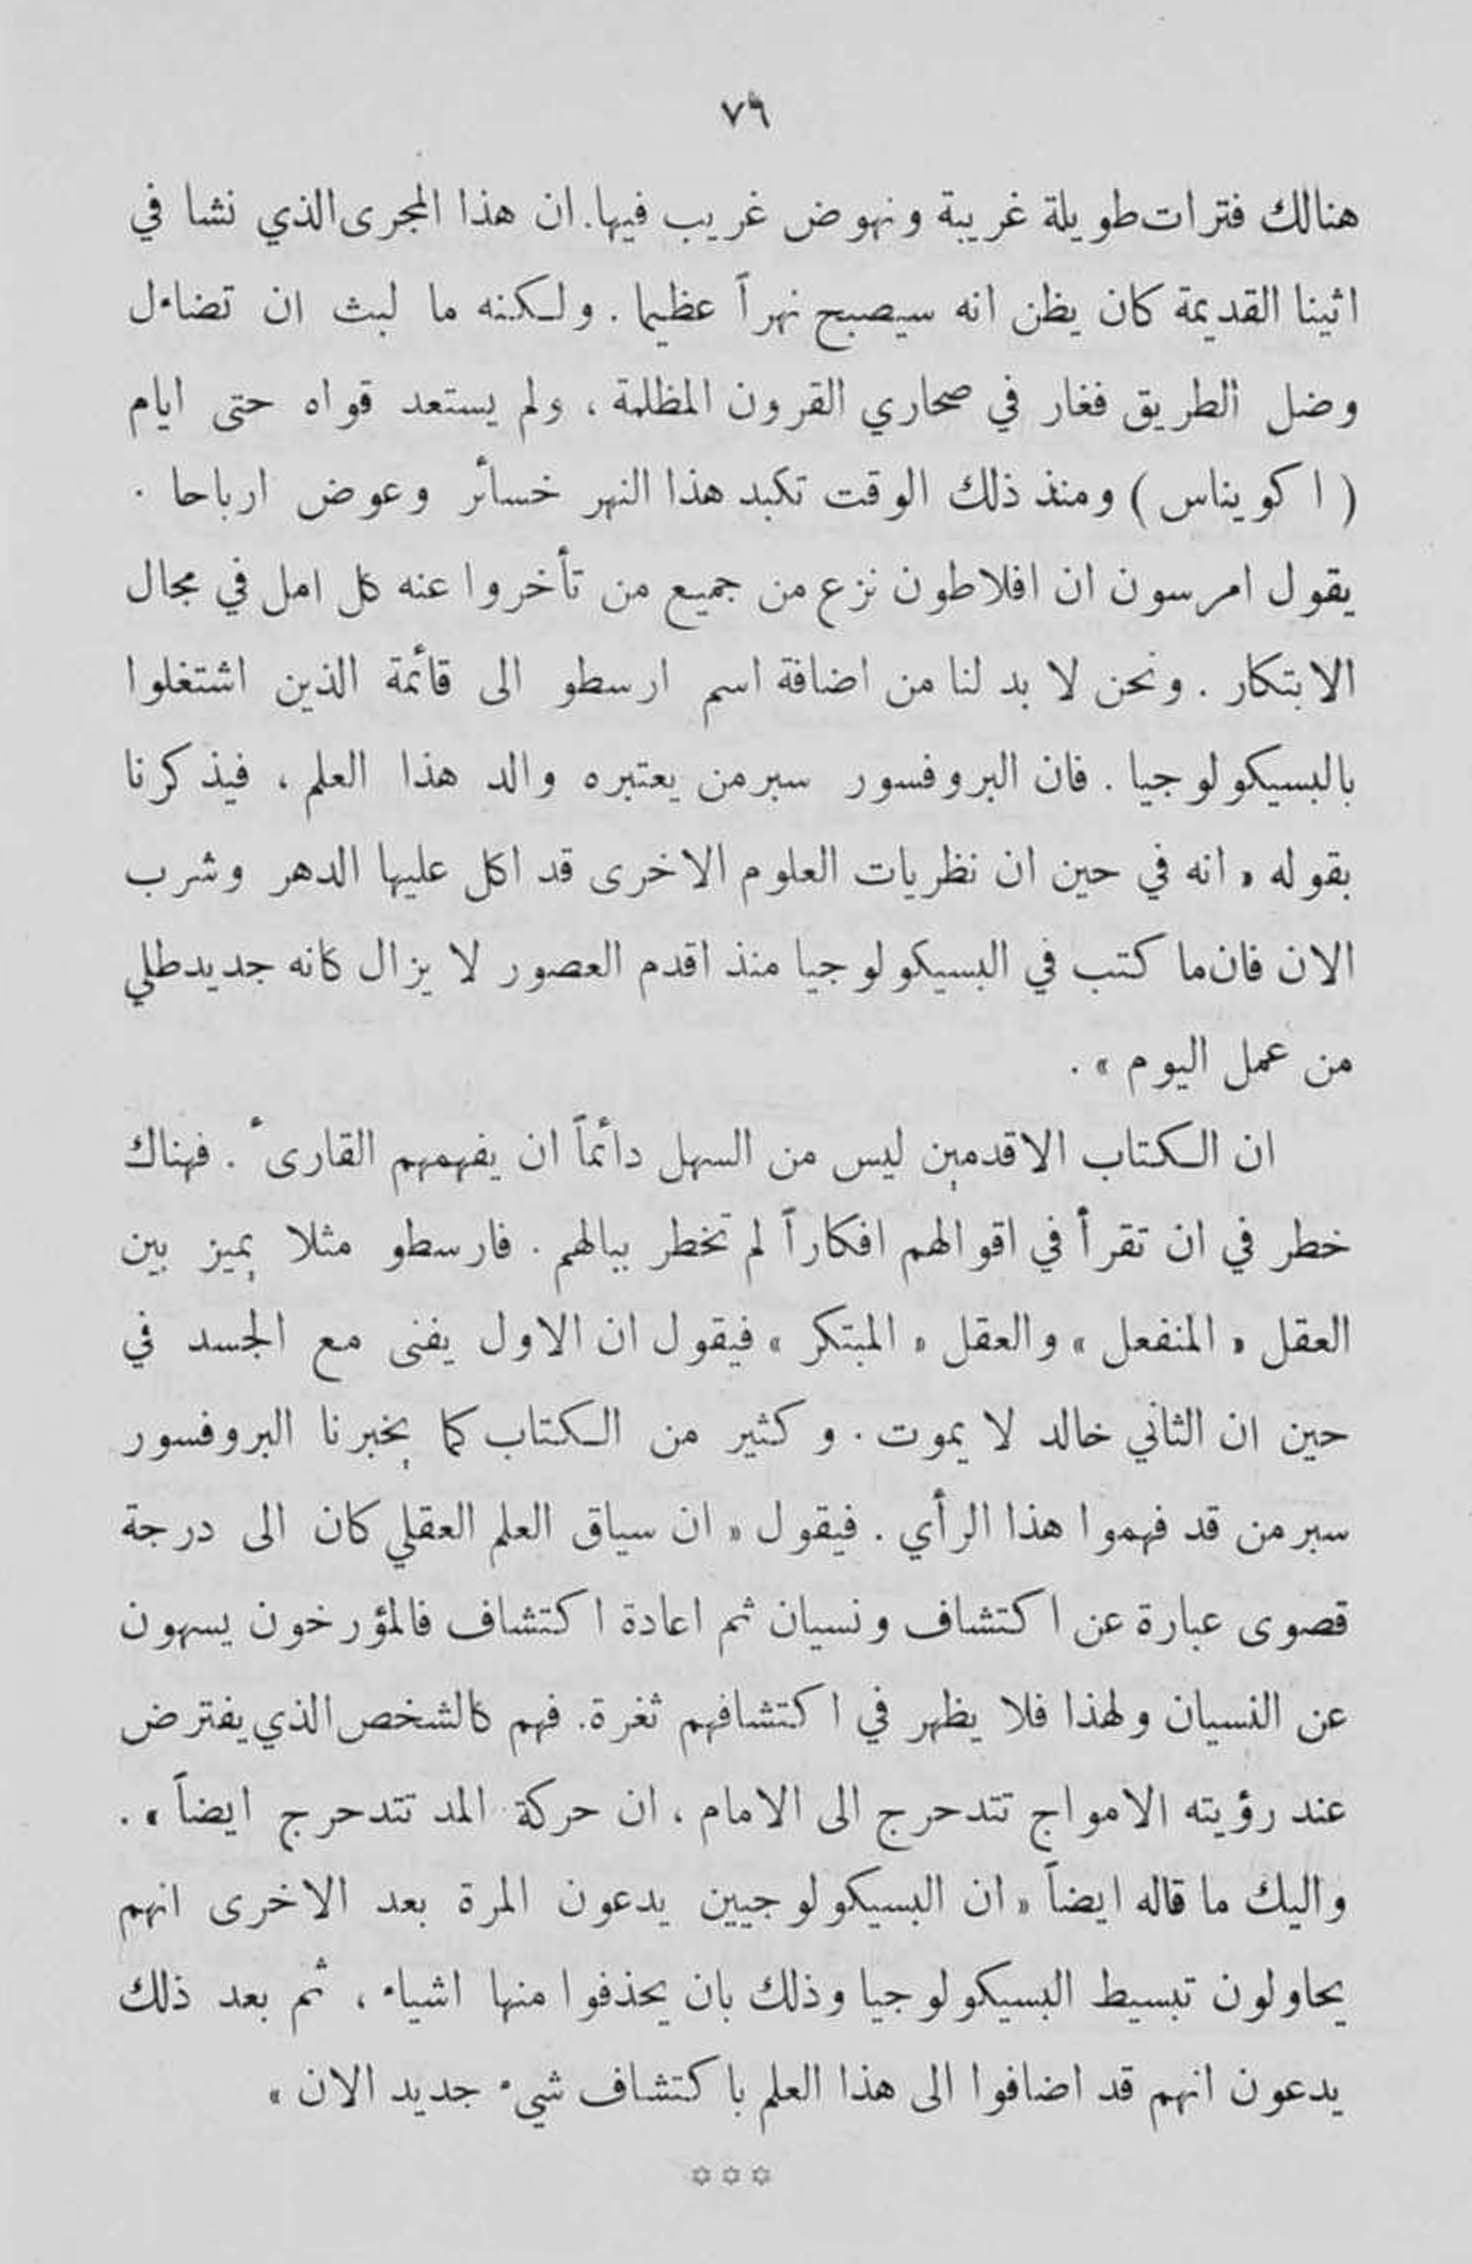 ٧٦
هنالك فترات طويلة غريبة ونهوض غريب فيها. ان هذا المجرى الذي نشا في
اثينا القديمة كان يظن انه سيصبح نهراً عظيما . ولكنه ما لبث ان تضاءل
وضل الطريق فغار في صحاري القرون المظلمة ، ولم يستعد قواه حتى ايام
( اكويناس ) ومنذ ذلك الوقت تكبد هذا النهر خسائر وعوض ارباحا .
يقول امرسون ان افلاطون نزع من جميع من تأخروا عنه كل امل في مجال
الابتكار . ونحن لا بد لنا من اضافة اسم ارسطو الى قائمة الذين اشتغلوا
بالبسيكولوجيا . فان البروفسور سبرمن يعتبره والد هذا العلم ، فيذكرنا
بقوله « انه في حين ان نظريات العلوم الاخرى قد اكل عليها الدهر وشرب
الان فان ما كتب في البسيكولوجيا منذ اقدم العصور لا يزال كانه جديد طلي
من عمل اليوم » .
ان الكتاب الاقدمين ليس من السهل دائماً ان يفهمهم القارىء . فهناك
خطر في ان تقرأ في اقوالهم افكاراً لم تخطر ببالهم . فارسطو مثلا يميز بين
العقل « المنفعل » والعقل « المبتكر » فيقول ان الاول يفنى مع الجسد في
حين ان الثاني خالد لا يموت . وكثير من الكتاب كما يخبرنا البروفسور
سبرمن قد فهموا هذا الرأي . فيقول « ان سياق العلم العقلي كان الى درجة
قصوى عبارة عن اكتشاف ونسيان ثم اعادة اكتشاف فالمؤرخون يسهون
عن النسيان ولهذا فلا يظهر في اكتشافهم ثغرة. فهم كالشخص الذي يفترض
عند رؤيته الامواج تتدحرج الى الامام ، ان حركة المد تتدحرج ايضاً » .
واليك ما قاله ايضاً « ان البسيكولوجيين يدعون المرة بعد الاخرى انهم
يحاولون تبسيط البسيكولوجيا وذلك بان يحذفوا منها اشياء ، ثم بعد ذلك
يدعون انهم قد اضافوا الى هذا العلم باكتشاف شيء جديد الان »
✡ ✡ ✡